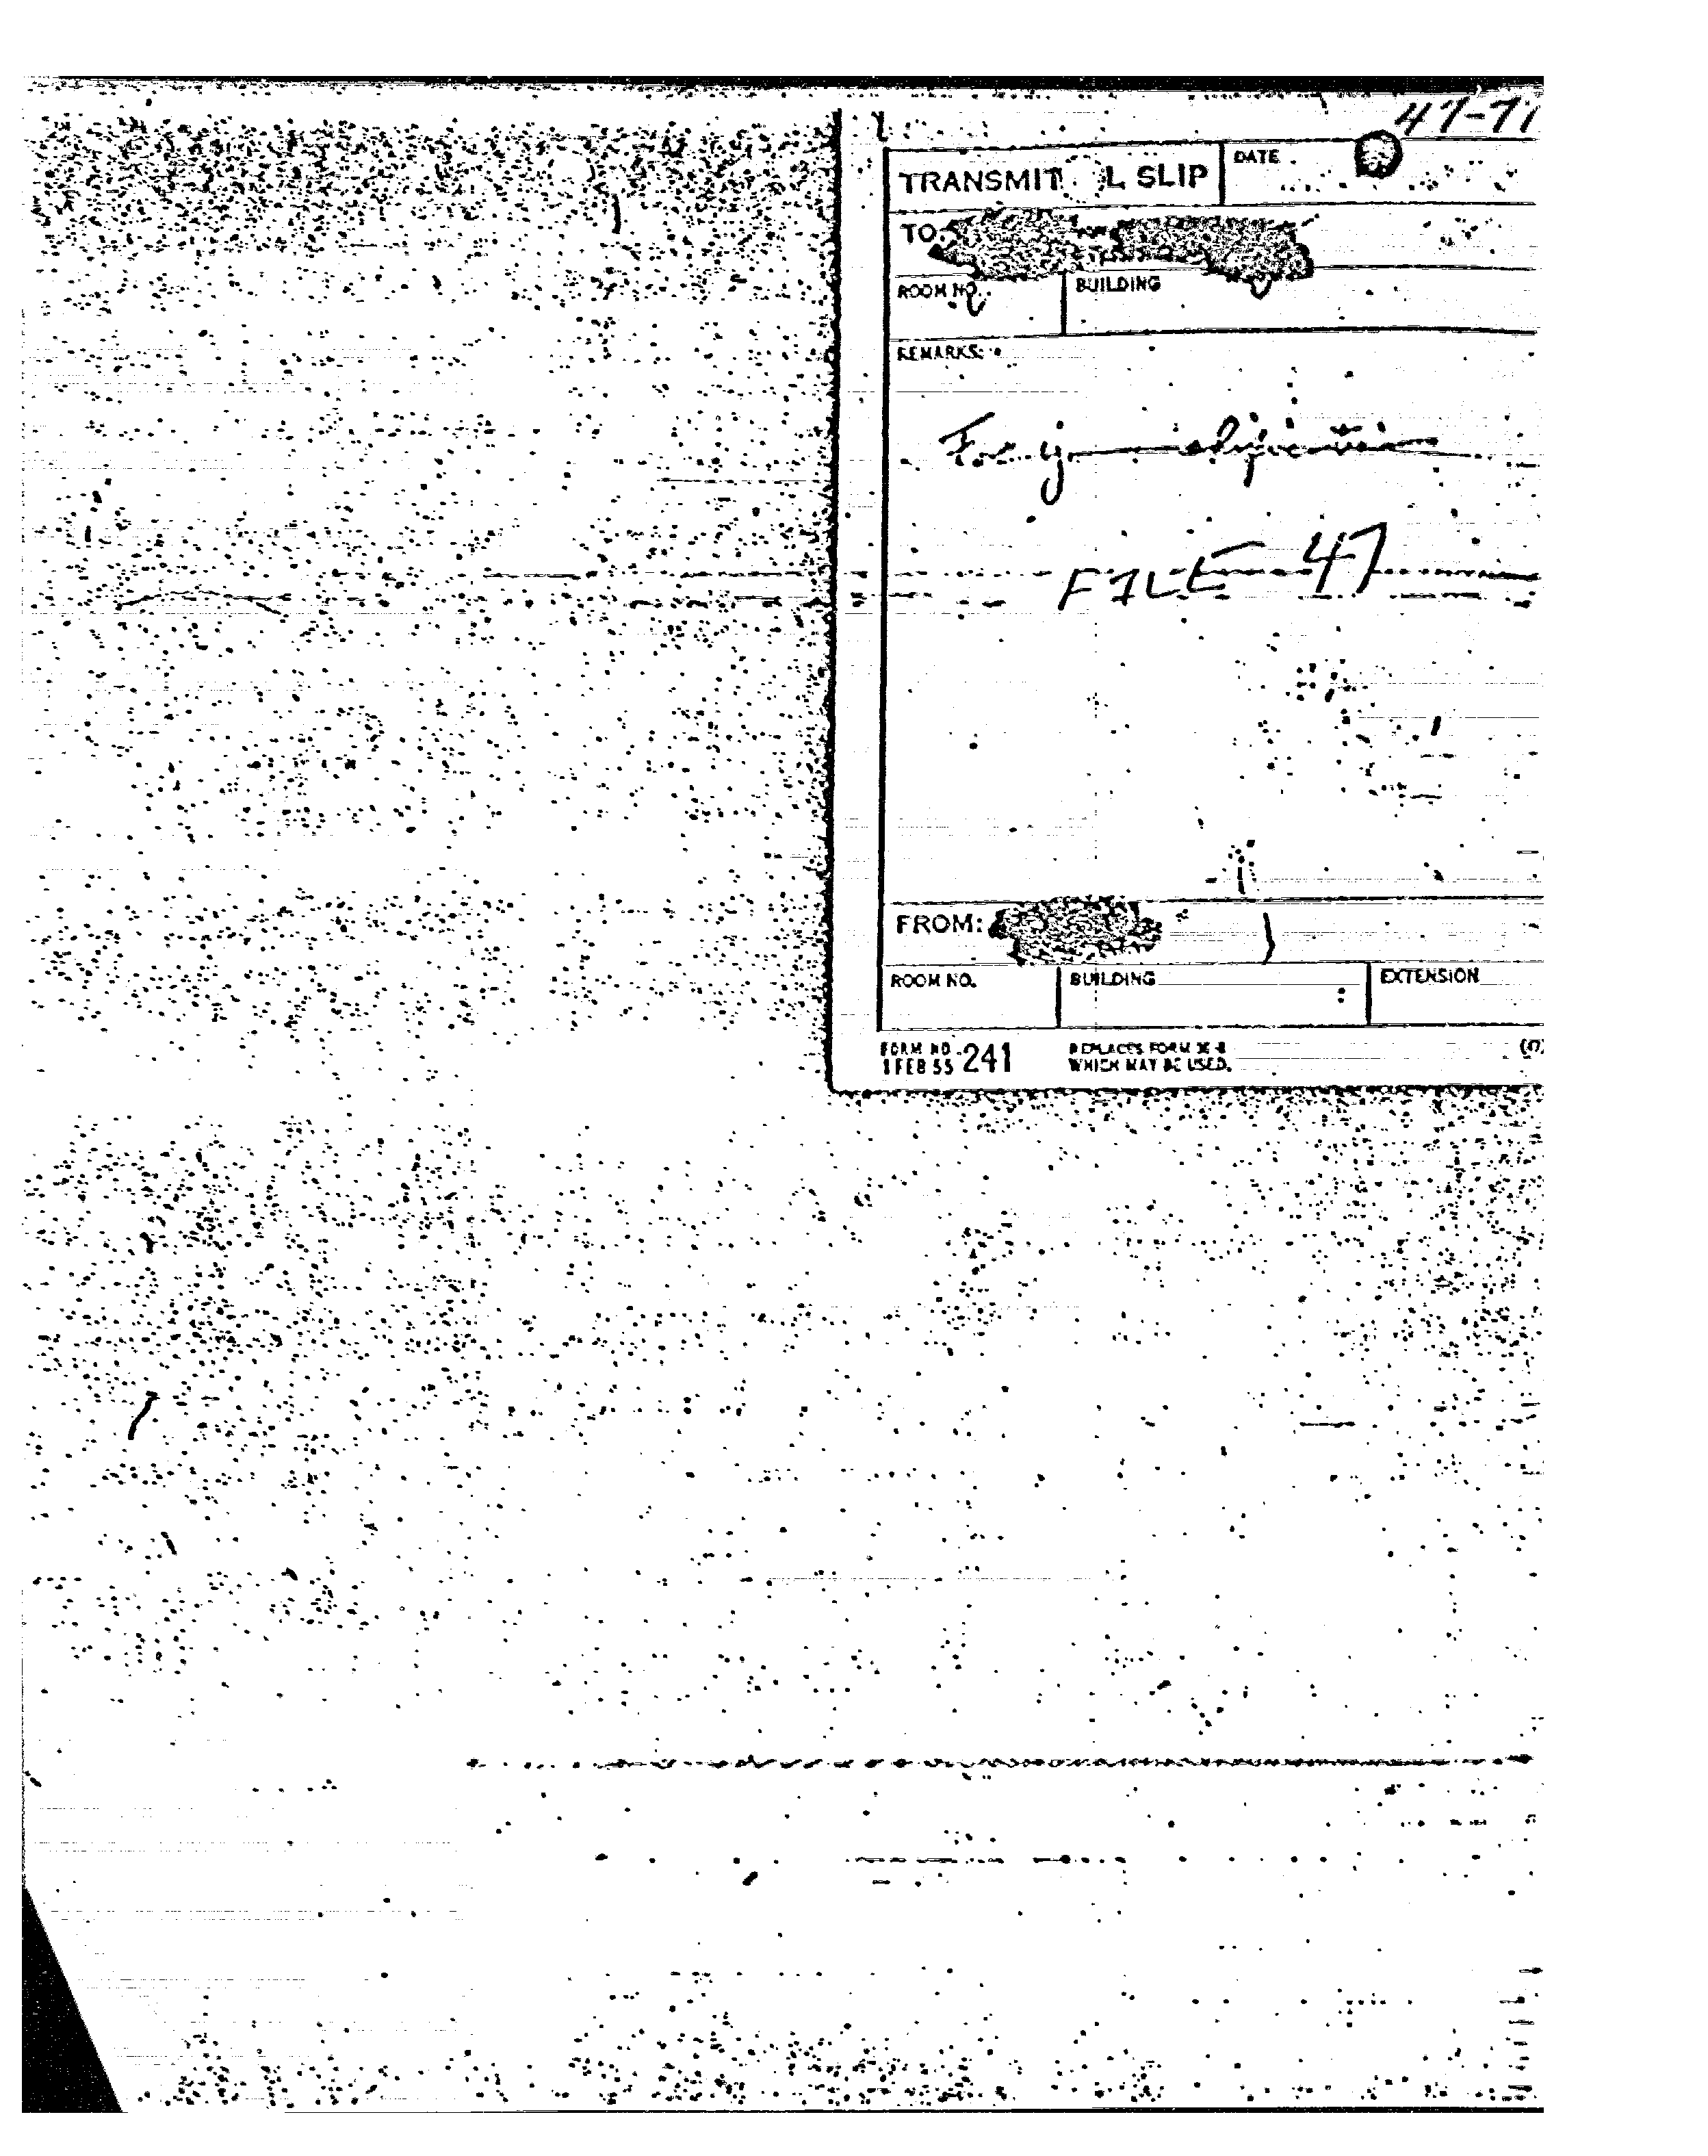 47-77
TRANSMIT L SLIP
DATE
TO
ROOM NO.
BUILDING
REMARKS:
For
FILE 47
FROM:
ROOM NO.
BUILDING
EXTENSION
FORM NO. 241
1 FEB 55
REPLACES FORM 36-8
WHICH MAY BE USED.